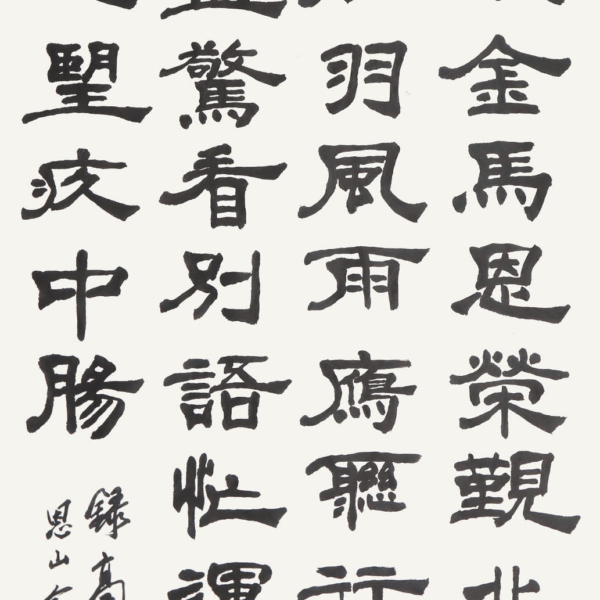 金馬恩榮覲北
羽風雨鴈聯行
驚看別語忙運
望疚中腸
録高
恩山